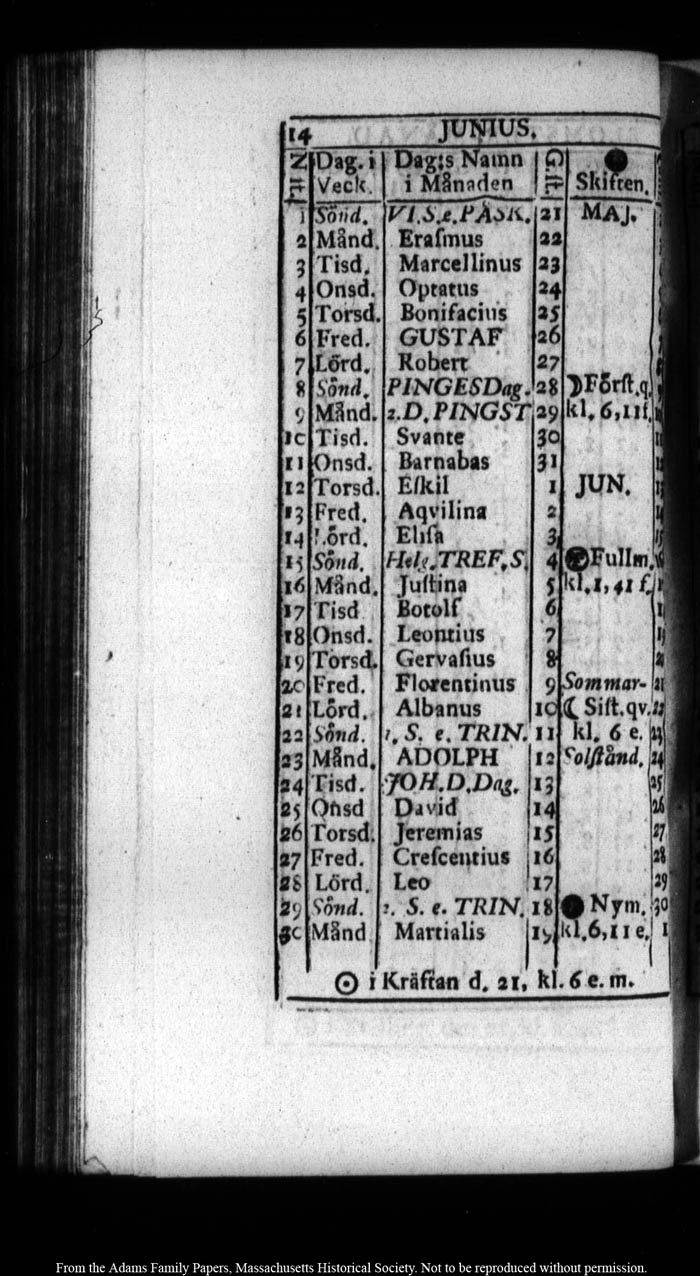 14 JUNIUS.
N.ſt. Dag. i Veck. Dag:s Namn i Månaden G.ſt. Skiften.
1 Sönd. VI.S.e.PÅSK. 21 MAJ.
2 Månd. Eraſmus 22
3 Tisd. Marcellinus 23
4 Onsd. Optatus 24
5 Torsd. Bonifacius 25
6 Fred. GUSTAF 26
7 Lörd. Robert 27
8 Sönd. PINGESDag. 28 ☽Förſt.q. 9
9 Månd. 2.D.PINGST 29 kl. 6,11f. 10
10 Tisd. Svante 30 11
11 Onsd. Barnabas 31 12
12 Torsd. Eſkil 1 JUN. 13
13 Fred. Aqvilina 2 14
14 Lörd. Eliſa 3 15
15 Sönd. Helg.TREF.S. 4 Fullm. 16
16 Månd. Juſtina 5 kl.1,41 f.
17 Tisd Botolf 6
18 Onsd. Leontius 7 19
19 Torsd. Gervaſius 8 20
20 Fred. Florentinus 9 Sommar- 21
21 Lörd. Albanus 10 ☾ Siſt.qv. 22
22 Sönd. 1. S. e. TRIN. 11 kl. 6 e. 23
23 Månd. ADOLPH 12 Solſtånd. 24
24 Tisd. JOH.D.Dag. 13 25
25 Onsd David 14 26
26 Torsd. Jeremias 15 27
27 Fred. Creſcentius 16 28
28 Lörd. Leo 17 29
29 Sönd. 2. S. e. TRIN. 18 ● Nym. 30
30 Månd Martialis 19 kl.6,11 e. 1
☉ i Kräftan d. 21, kl. 6 e. m.
From the Adams Family Papers, Massachusetts Historical Society. Not to be reproduced without permission.